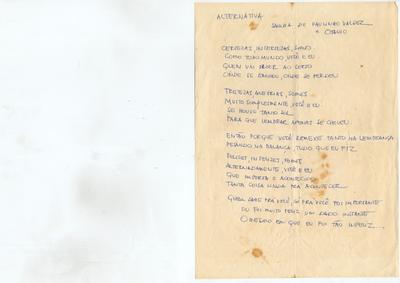 ALTERNATIVA
SAMBA DE PAULINHO VALDEZ
E
CERTEZAS, INCERTEZAS, SOMOS
COMO TODO MUNDO, VOCÊ E EU
QUEM VAI DIZER AO CERTO
ONDE SE GANHOU, ONDE SE PERDEU
TRISTEZAS, ALEGRIAS, SOMOS
MUITO SIMPLESMENTE, VOCÊ E EU
SE HOUVE TANTO SOL
PARA QUE LEMBRAR APENAS SE CHOVEU
ENTÃO PORQUE VOCÊ REMEXE TANTO NA LEMBRANÇA
PESANDO NA BALANÇA, TUDO QUE EU FIZ
FELIZES, INFELIZES, FOMOS
ALTERNADAMENTE, VOCÊ E EU
QUE IMPORTA O ACONTECIDO
TANTA COISA AINDA PRA ACONTECER
QUEM SABE PRÁ VOCÊ, SÓ PRÁ VOCÊ FOI IMPORTANTE
OU FOI MUITO FELIZ, UM RARO INSTANTE
O MESMO EM QUE EU FUI TÃO INFELIZ...